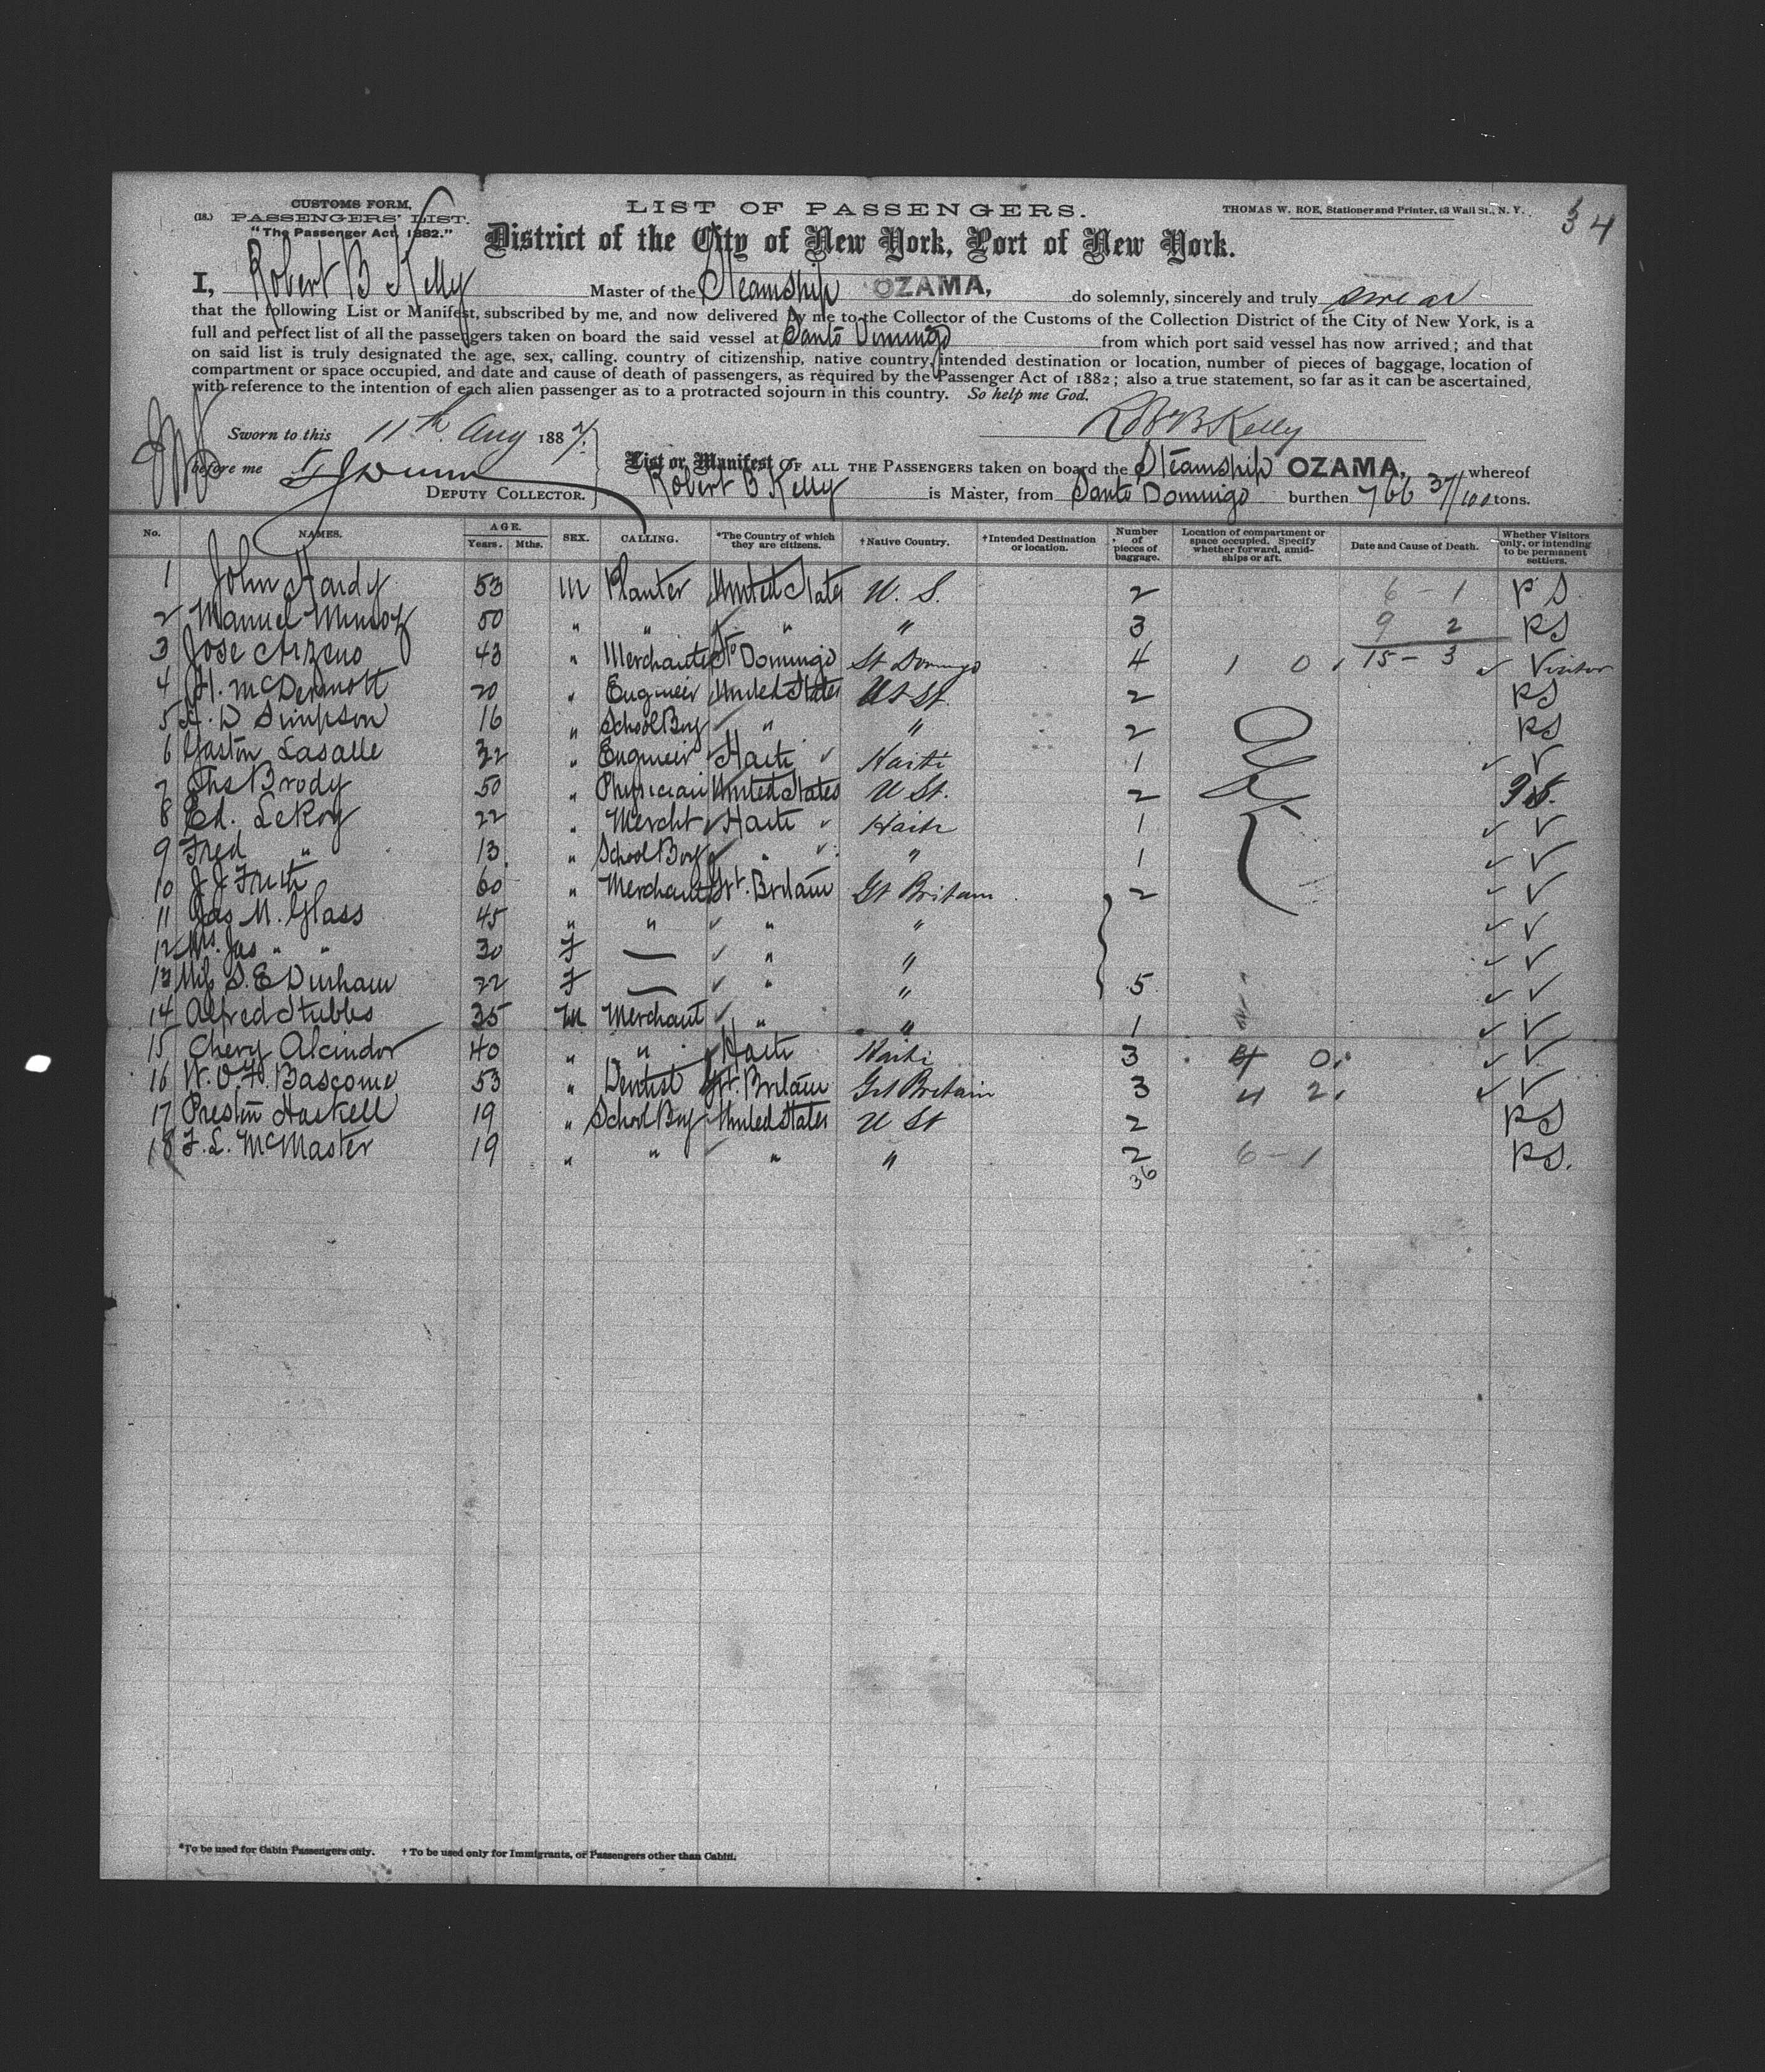 CUSTOMS FORM,
(18.) PASSENGERS' LIST.
"The Passenger Act, 1882."
LIST OF PASSENGERS.
THOMAS W. ROE, Stationer and Printer, 63 Wall St., N. Y.
54
District of the City of New York, Port of New York.
I, Robert B Kelly Master of the Steamship OZAMA, do solemnly, sincerely and truly swear
that the following List or Manifest, subscribed by me, and now delivered by me to the Collector of the Customs of the Collection District of the City of New York, is a
full and perfect list of all the passengers taken on board the said vessel at Santo Domingo from which port said vessel has now arrived; and that
on said list is truly designated the age, sex, calling, country of citizenship, native country, intended destination or location, number of pieces of baggage, location of
compartment or space occupied, and date and cause of death of passengers, as required by the Passenger Act of 1882; also a true statement, so far as it can be ascertained,
with reference to the intention of each alien passenger as to a protracted sojourn in this country. So help me God.
Sworn to this 11th Aug 1887.
Robt B Kelly
before me
DEPUTY COLLECTOR.
List or Manifest OF ALL THE PASSENGERS taken on board the Steamship OZAMA, whereof
Robert B Kelly is Master, from Santo Domingo burthen 766 37/100 tons.
No. NAMES. AGE. Years. Mths. SEX. CALLING. *The Country of which they are citizens. †Native Country. †Intended Destination or location. Number of pieces of baggage. Location of compartment or space occupied. Specify whether forward, amidships or aft. Date and Cause of Death. Whether Visitors only, or intending to be permanent settlers.
1 John Hardy 53 M Planter United States U. S. 2 6 - 1 P S.
2 Manuel Munoz 50 " " " " 3 9 2 PS
3 Jose 43 " Merchant St Domingo St Domingo 4 1 0 15 - 3 Visitor
4 H. McDermott 20 " Engineer United States U St. 2 PS
5 D Simpson 16 " School Boy " " 2 PS
6 Gaston Lasalle 32 " Engineer Haiti Haiti 1 V
7 Ths Brody 50 " Physician United States U St. 2
8 Ed. LeRoy 22 " Mercht Haiti Haiti 1 V
9 Fred " 13 " School Boy " " 1 V
10 J J Frith 60 " Merchant Gt. Britain Gt Britain 2 V
11 Jas M. Glass 45 " " " " V
12 Mrs. Jas " " 30 F — " " V
13 Miss S. E Durham 22 F — " " 5 V
14 Alfred Stubbs 35 M Merchant " " 1 V
15 Chery Alcindor 40 " " Haiti Haiti 3 0 V
16 W. O. F. Bascome 53 " Dentist Gt. Britain Gt Britain 3 4 2 V
17 Preston Haskell 19 " School Boy United States U St 2 PS
18 F. L. McMaster 19 " " " " 2 6 - 1 PS.
36
*To be used for Cabin Passengers only. † To be used only for Immigrants, or Passengers other than Cabin.